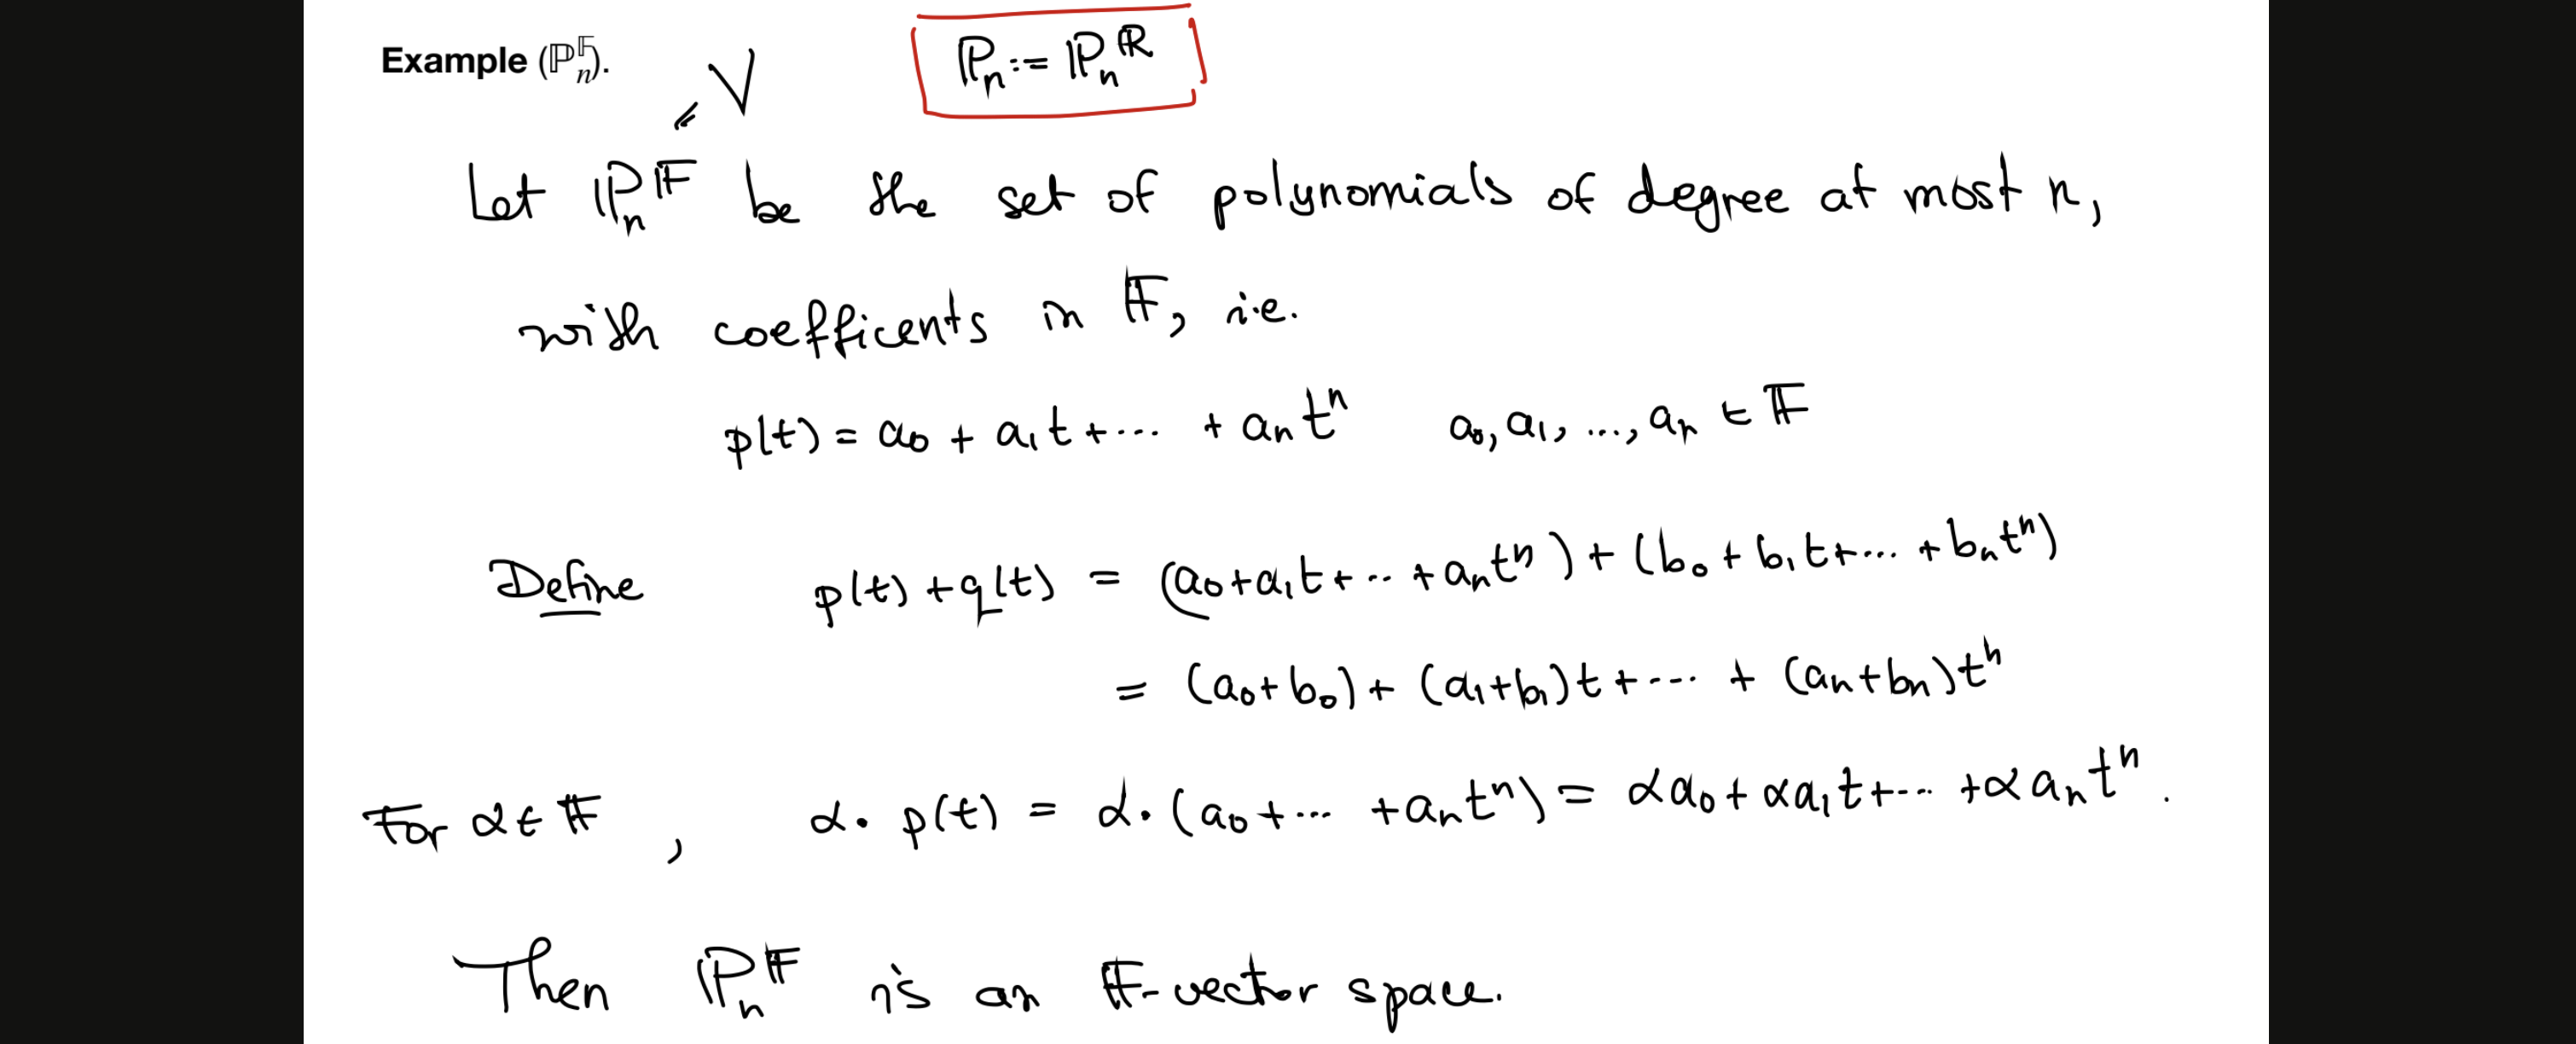 Example (ℙₙ^𝔽).
V
ℙₙ := ℙₙ^ℝ
Let ℙₙ^𝔽 be the set of polynomials of degree at most n,
with coefficents in 𝔽, i.e.
p(t) = a₀ + a₁t + ... + aₙtⁿ a₀, a₁, ..., aₙ ∈ 𝔽
Define p(t) + q(t) = (a₀ + a₁t + .. + aₙtⁿ) + (b₀ + b₁t + ... + bₙtⁿ)
= (a₀+b₀) + (a₁+b₁)t + ... + (aₙ+bₙ)tⁿ
For α ∈ 𝔽, α · p(t) = α · (a₀ + ... + aₙtⁿ) = αa₀ + αa₁t + ... + αaₙtⁿ.
Then ℙₙ^𝔽 is an 𝔽-vector space.